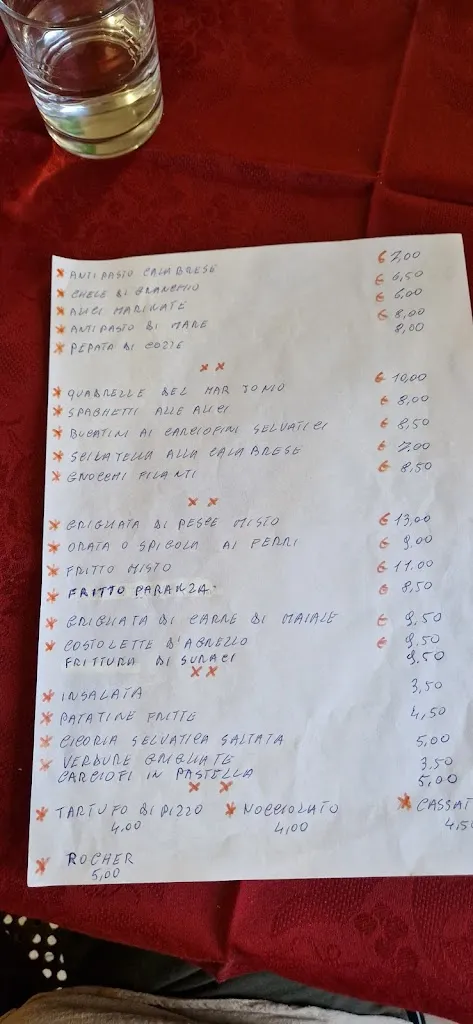 * ANTIPASTO CALABRESE € 7,00
* CHELE DI GRANCHIO € 6,50
* ALICI MARINATE € 6,00
* ANTIPASTO DI MARE € 8,00
* PEPATA DI COZZE 8,00
* *
* QUADRELLE DEL MAR JONIO € 10,00
* SPAGHETTI ALLE ALICI € 8,00
* BUCATINI AI CARCIOFINI SELVATICI € 8,50
* SCILATELLA ALLA CALABRESE € 7,00
* GNOCCHI FILANTI € 8,50
* *
* GRIGLIATA DI PESCE MISTO € 13,00
* ORATA O SPIGOLA AI FERRI € 9,00
* FRITTO MISTO € 11.00
* FRITTO PARANZA € 8,50
* GRIGLIATA DI CARNE DI MAIALE € 9,50
* COSTOLETTE D'AGNELLO € 9.50
FRITTURA DI SURACI 9.50
* *
* INSALATA 3,50
* PATATINE FRITTE 4,50
* CICORIA SELVATICA SALTATA 5,00
* VERDURE GRIGLIATE 3.50
CARCIOFI IN PASTELLA 5,00
* *
* TARTUFO DI PIZZO * NOCCIOLATO * CASSAT
4,00 4,00 4,5
* ROCHER
5,00